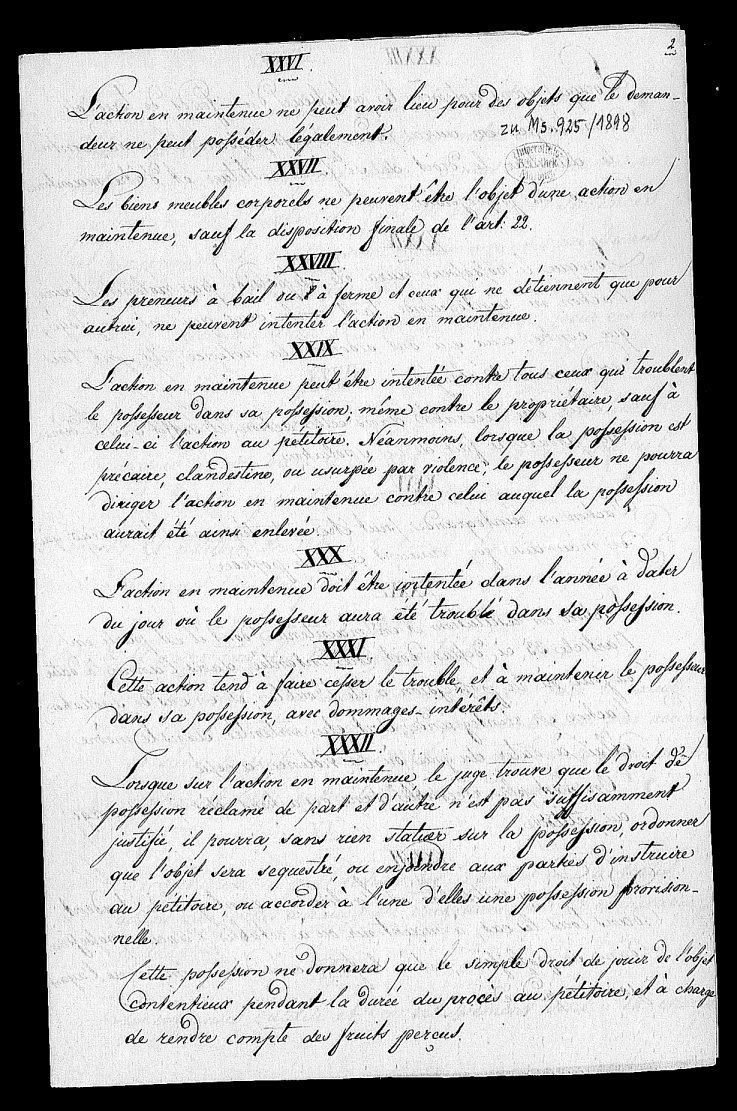 2
XXVI.
L'action en maintenue ne peut avoir lieu pour des objets que le deman-
deur ne peut posséder légalement.
zu Ms. 925/1898
XXVII
Les biens meubles corporels ne peuvent être l'objet d'une action en
maintenue, sauf la disposition finale de l'art. 22.
XXVIII
Les preneurs à bail ou à ferme et ceux qui ne détiennent que pour
autrui, ne peuvent intenter l'action en maintenue.
XXIX
L'action en maintenue peut être intentée contre tous ceux qui troublent
le possesseur dans sa possession, même contre le propriétaire, sauf à
celui-ci l'action au pétitoire. Néanmoins, lorsque la possession est
précaire, clandestine, ou usurpée par violence, le possesseur ne pourra
diriger l'action en maintenue contre celui auquel la possession
aurait été ainsi enlevée.
XXX
L'action en maintenue doit être intentée dans l'année à dater
du jour où le possesseur aura été troublé dans sa possession.
XXXI
Cette action tend à faire cesser le trouble, et à maintenir le possesseur
dans sa possession, avec dommages-intérêts.
XXXII
Lorsque sur l'action en maintenue le juge trouve que le droit de
possession réclamé de part et d'autre n'est pas suffisamment
justifié, il pourra, sans rien statuer sur la possession, ordonner
que l'objet sera sequestré, ou enjoindre aux parties d'instruire
au pétitoire, ou accorder à l'une d'elles une possession provision-
nelle.
Cette possession ne donnera que le simple droit de jouir de l'objet
contentieux pendant la durée du procès au pétitoire, et à charge
de rendre compte des fruits perçus.